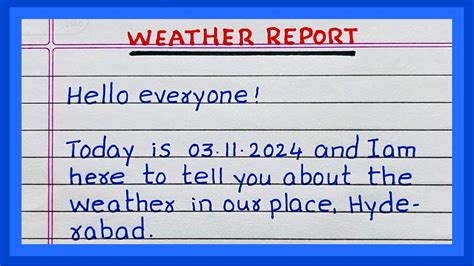 WEATHER REPORT
Hello everyone!
Today is 03.11.2024 and Iam
here to tell you about the
weather in our place, Hyde-
rabad.